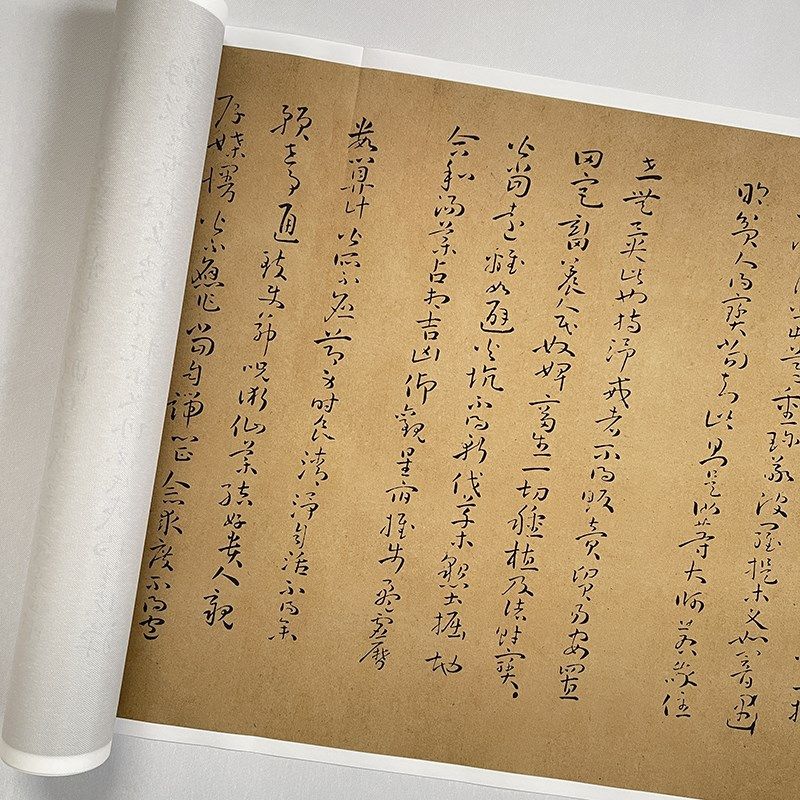 尊重珍敬波羅提木叉如闇遇
明貧人得寶當知此則是汝等大師若我住
世無異此也持淨戒者不得販賣貿易安置
田宅畜養人民奴婢畜生一切種植及諸財寶
皆當遠離如避火坑不得斬伐草木墾土掘地
合和湯藥占相吉凶仰觀星宿推步盈虛曆
數算計皆所不應節身時食清淨自活不得參
預世事通致使命呪術仙藥結好貴人親
厚媟嫚皆不應作當自端心正念求度不得包